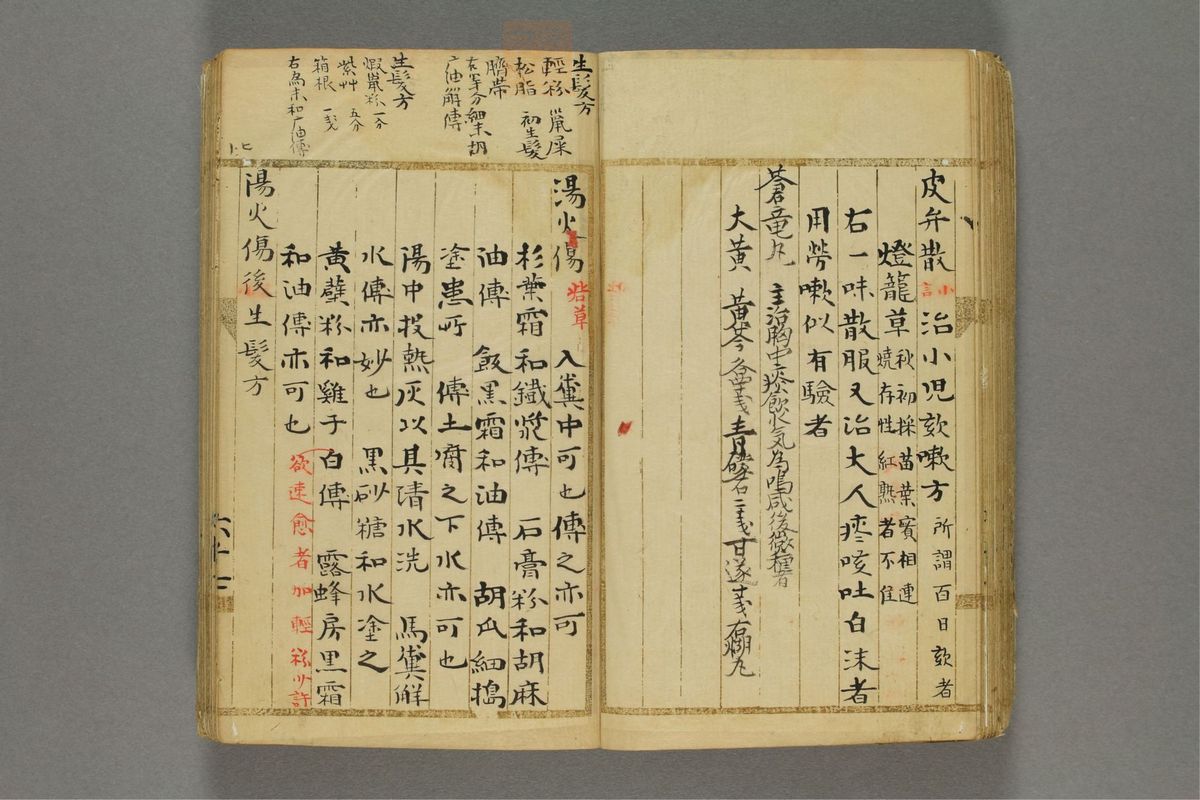 皮弁散 治小児欬嗽方 所謂百日欬者
燈籠草 秋初採苗葉實相連
燒存性 紅熟者不佳
右一味散服又治大人痰咳吐白沫者
用勞嗽似有驗者
蒼竜丸 主治胸中痰飲火気為鳴咸後微種者
大黄 黄芩 各四戔 青礞石二戔 甘遂 戔 右糊丸
生髮方
輕粉 鼠屎
松脂 初生髮
臍帯
右等分細末胡
广油解傅
生髮方
蝦鼠粉 一分
紫艸 五分
箱根 一戔
右為末和广油傅
湯火傷 砦草 入糞中可也傅之亦可
杉葉霜和鐵漿傅 石膏粉和胡麻
油傅 飯黒霜和油傅 胡瓜細搗
塗患所 傅土腐之下水亦可也
湯中投熱灰以其清水洗 馬糞解
水傅亦妙也 黒砂糖和水塗之
黄蘗粉和雞子白傅 露蜂房黒霜
和油傅亦可也 欲速愈者加輕粉少許
湯火傷後生髮方
六十七